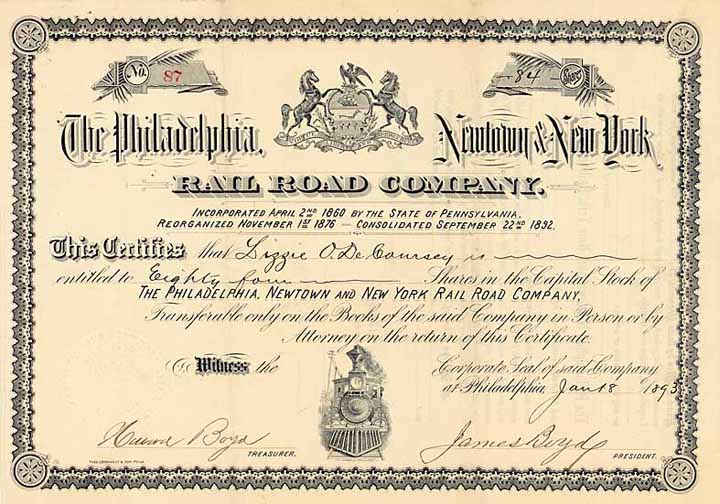 No. 87
84 Shares
The Philadelphia, Newtown & New York
RAIL ROAD COMPANY.
INCORPORATED APRIL 2ND 1860 BY THE STATE OF PENNSYLVANIA.
REORGANIZED NOVEMBER 1ST 1876 — CONSOLIDATED SEPTEMBER 22ND 1892.
This Certifies that Lizzie O. De Coursey is
entitled to Eighty four Shares in the Capital Stock of
THE PHILADELPHIA, NEWTOWN AND NEW YORK RAIL ROAD COMPANY,
Transferable only on the Books of the said Company in Person or by
Attorney on the return of this Certificate.
Witness the Corporate Seal of said Company
at Philadelphia, Jan 18 1893
Boyd James Boyd
TREASURER. PRESIDENT.